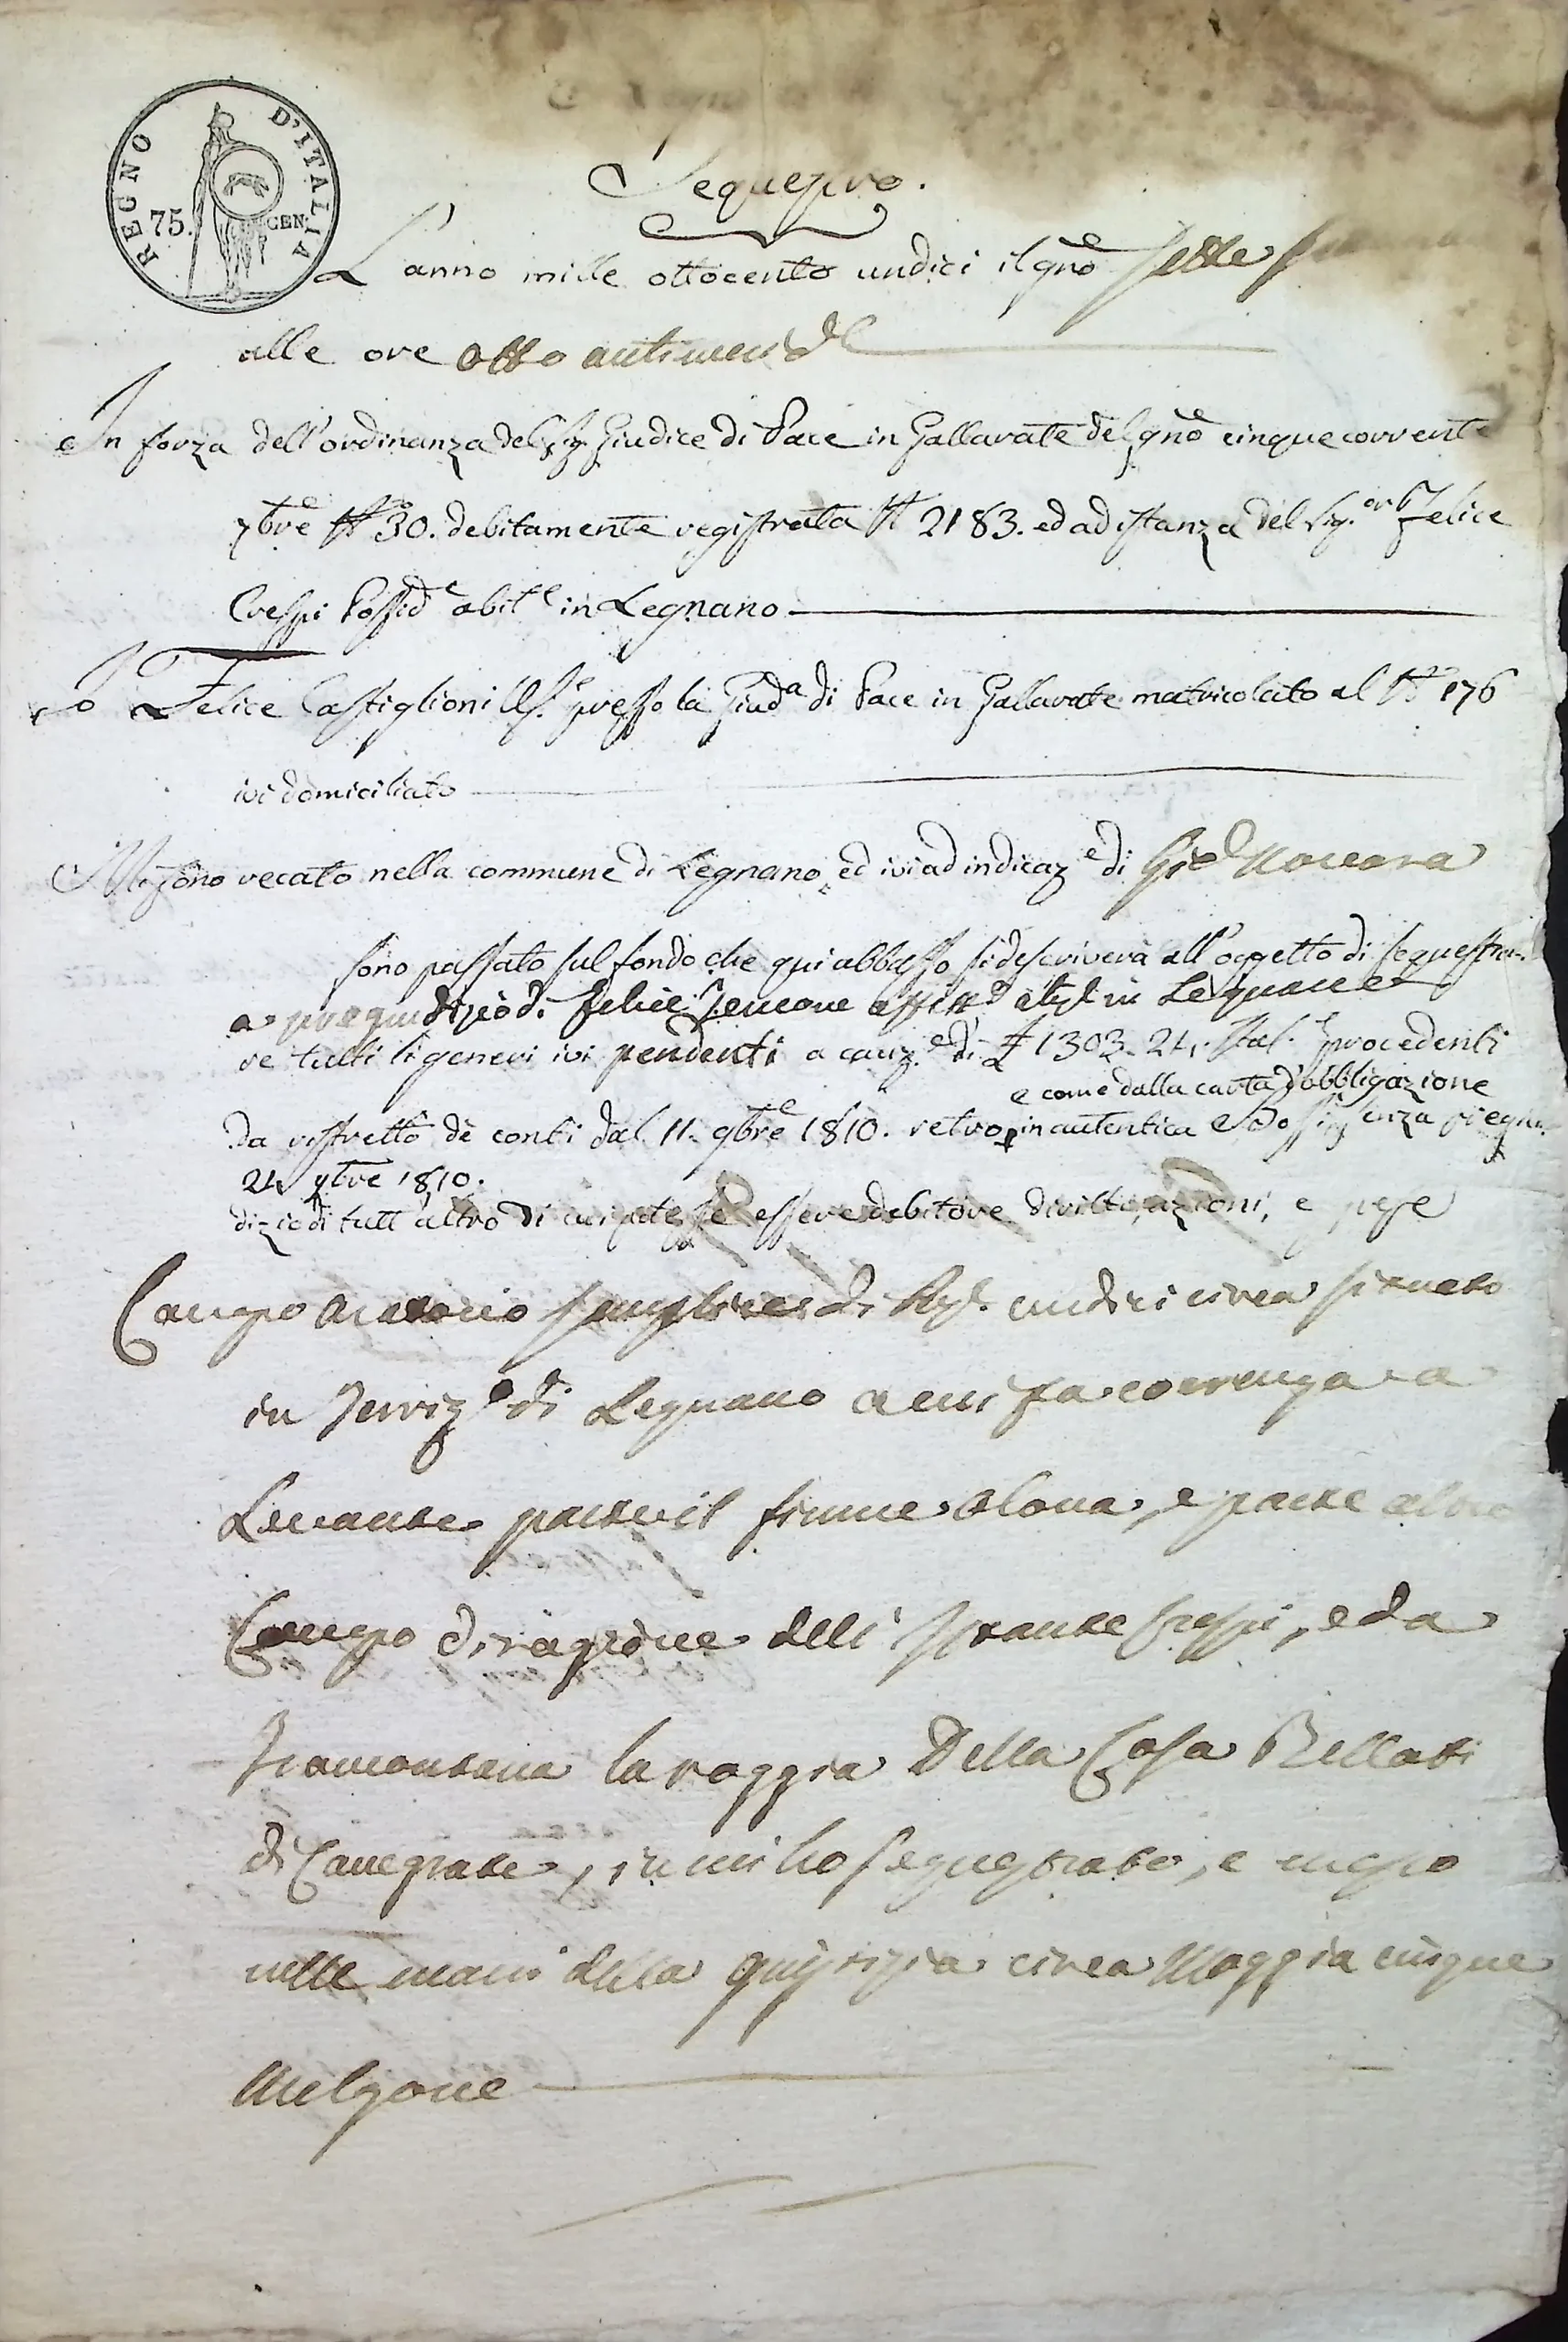 REGNO D'ITALIA
75. CEN.
Sequestro.
L'anno mille ottocento undici il gno sette
alle ore otto antimerid
In forza dell'ordinanza del Sig. Giudice di Pace in Gallarate del gno cinque corrente
7bre N 30. debitamente registrata N 2183. ed ad istanza del Sig.or Felice
Crespi Possid.e abit.e in Legnano
Io Felice Castiglioni Us.e presso la Giud.a di Pace in Gallarate matricolato al N 176
ivi domiciliato
Mi sono recato nella commune di Legnano, ed ivi ad indicaz.e di Gio
sono passato sul fondo che qui abbasso si descriverà all'oggetto di sequestra-
a pregiudizio di Felice in Legnano
re tutti li generi ivi pendenti a cauz.e di £ 1303. 21. procedenti
e come dalla carta d'obbligazione
da ristretto de conti dal 11. 9bre 1810. retro in autentica senza pregiu-
21 9bre 1810.
dizio di tutt'altro di cui potesse essere debitore diritti, azioni, e spese
Campo aratorio semplice di undici circa situato
in Territ.o di Legnano a cui fa coerenza a
Levante parte il fiume Olona, e parte altro
Campo di ragione dell'istante Crespi, e da
Tramontana la roggia Della Casa Bellati
di Canegrate, in cui ho sequestrato, e messo
nelle mani della giustizia circa Moggia cinque
Melgone